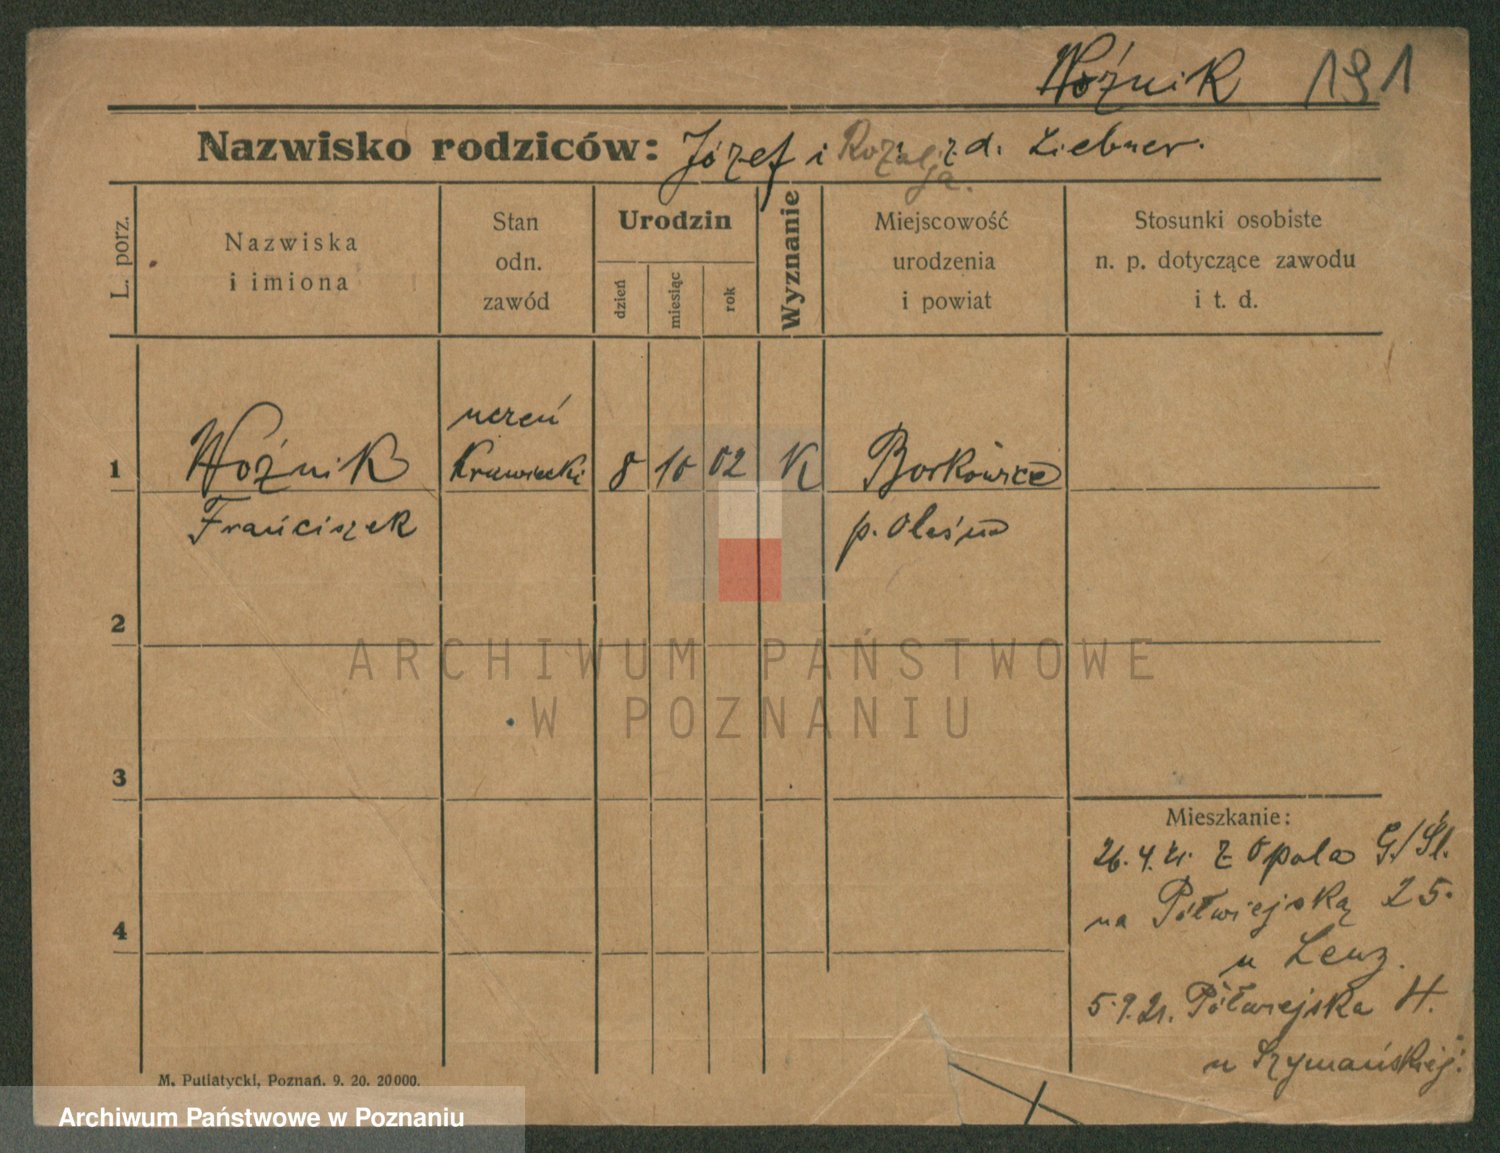 Woźnik 191
Nazwisko rodziców: Józef i Rozalja z d. Liebner.
L. porz.
Nazwiska
i imiona
Stan
odn.
zawód
Urodzin
dzień
miesiąc
rok
Wyznanie
Miejscowość
urodzenia
i powiat
Stosunki osobiste
n. p. dotyczące zawodu
i t. d.
1
Woźnik
Franciszek
uczeń
Krawiecki
8
10
02
K
Borkowice
p. Oleśno
2
3
4
Mieszkanie:
26.4.21. z Opola G/Śl.
na Półwiejską 25.
u Lenz.
5.9.21. Półwiejska
u Szymańskiej.
M. Putiatycki, Poznań. 9. 20. 20000.
ARCHIWUM PAŃSTWOWE
W POZNANIU
Archiwum Państwowe w Poznaniu